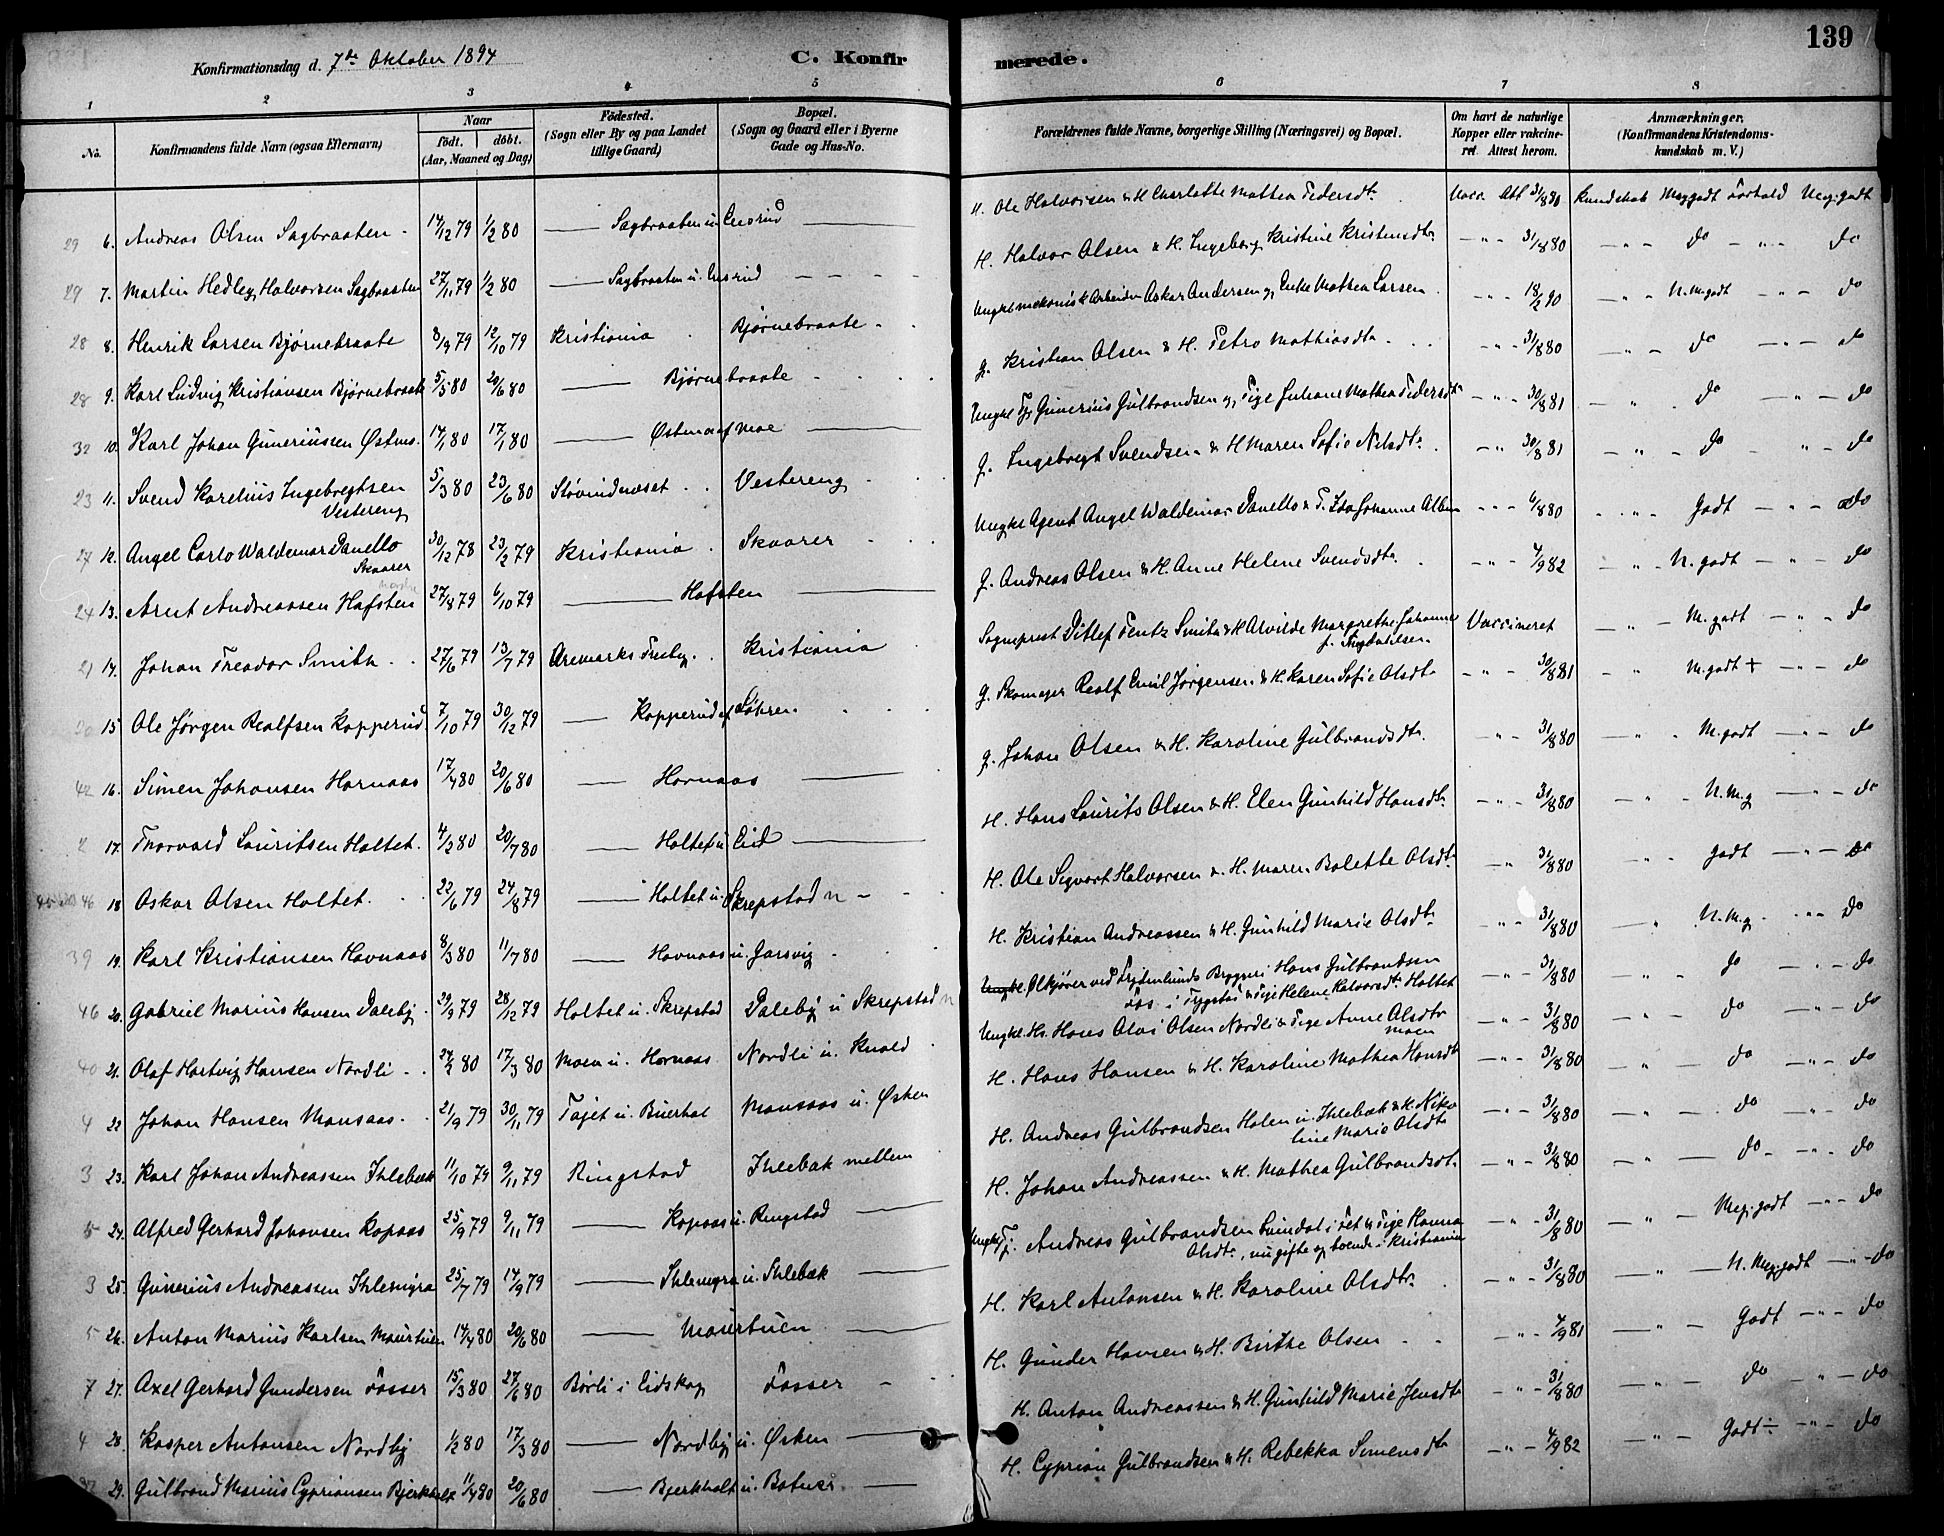 139
Konfirmationsdag d. 7de Oktober 1894 C. Konfirmerede.
1 2 3 4 5 6 7 8
No. Konfirmandens fulde Navn (ogsaa Efternavn) Naar født. døbt. (Aar, Maaned og Dag) Födested. (Sogn eller By og paa Landet tillige Gaard) Bopæl. (Sogn og Gaard eller i Byerne Gade og Hus-No. Forældrenes fulde Navne, borgerlige Stilling (Næringsvei) og Bopæl. Om havt de naturlige Kopper eller vakcineret. Attest herom. Anmærkninger. (Konfirmandens Kristendomskundskab m. V.)
29 6. Andreas Olsen Sagbraaten 14/12 79 1/2 80 — Sagbraaten u. — H. Ole Halvorsen & H. Charlotte Mathea Pedersdtr. Vacc. Att 31/8 80 Kundskab Meg godt Forhold Meg. godt
29 7. Martin Hedley Halvorsen Sagbraaten 27/11 79 1/2 80 — Sagbraaten u. — H. Halvor Olsen & H. Ingeborg Kristine Kristensdtr. — " — 31/8 80 — " — do — " — do
28 8. Henrik Larsen Bjørnebraate 8/9 79 12/10 79 Kristiania Bjørnebraate Ungkl mekanisk Arbeider Askar Andersen og Enke Mathea Larsen — " — 18/2 90 — " — N. M. godt — " — do
28 9. Karl Ludvig Kristiansen Bjørnebraate 5/5 80 20/6 80 — Bjørnebraate G. Kristian Olsen & H. Petra Mathiasdtr. — " — 31/8 80 — " — do — " — do
32 10. Karl Johan Guneriussen Østmo 14/1 80 17/1 80 — Østmo af Moe — Ungkl Tj. Gunerius Gulbrandsen og Pige Juliane Mathea Pedersdtr — " — 30/8 81 — " — do — " — do
23 11. Svend Karelius Ingebregtsen Vestereng 5/3 80 23/6 80 Vestereng G. Ingebregt Svendsen & H Maren Sofie Nilsdtr. — " — 30/8 81 — " — do — " — do
27 12. Angel Carlo Waldemar Danello Skaarer 30/12 78 23/2 79 Kristiania Skaarer Ungkl Agent Angel Waldemar Danello & P. Ida Johanne — " — 6/8 80 — " — Godt — " — do
24 13. Arnt Andreassen Hafsten 27/8 79 6/10 79 — Hafsten — G. Andreas Olsen & H. Anne Helene Svendsdtr. — " — 4/9 82 — " — N. godt — " — do
21 14. Johan Theodor Smith 27/6 79 13/7 79 Aremarks Kristiania Sogneprest Ditlef Smith & H. Alvilde Margrethe Johanne Vaccineret — " — M. godt — " — do
15 Ole Jørgen Realfsen Kopperud 7/10 79 30/12 79 — Kopperud af Løhren G. Skomager Realf Emil Jørgensen & H. Karen Sofie Olsdtr — " — 30/8 81 — " — M. godt + — " — do
42 16. Simen Johansen Hornaas 17/4 80 20/6 80 — Hornaas — G. Johan Olsen & H. Karoline Gulbrandsdtr. — " — 31/8 80 — " — M. godt — " — do
2 17. Thorvald Lauritsen Holtet 4/2 80 20/7 80 — Holtet u. Eid — H. Hans Laurits Olsen & H. Elen Gunhild Hansdtr. — " — 31/8 80 — " — N. M. g — " — do
46 18 Askar Olsen Holtet 22/6 79 24/8 79 — Holtet u. Skrepstad n — H. Ole Sigvart Halvorsen & H. Maren Bolette Olsdtr — " — 31/8 80 — " — Godt — " — do
39 19. Karl Kristiansen Havnaas 8/3 80 11/7 80 — Havnaas u. Garsvig H. Kristian Andreassen & H. Gunhild Marie Olsdtr — " — 31/8 80 — " — N. M. g. — " — do
46 20. Gabriel Marius Hansen Daleby 29/9 79 28/12 79 Holtet u. Skrepstad Daleby u Skrepstad n Ungkl. Ølkjører ved Frydenlunds Bryggeri Hans Gulbrandsen Fos. i Trygstad & Pige Helene Halvorsdtr Holtet — " — 31/8 80 — " — do — " — do
40 21. Olaf Hartvig Hansen Nordli 24/2 80 17/3 80 Moen u. Hornaas Nordli u. Knold Ungkl. Hr. Hans Olai Olsen Nordli & Pige Anne Olsdtr Moen — " — 31/8 80 — " — do — " — do
4 22 Johan Hansen Monsaas 21/9 79 30/11 79 Tajet u. Buerhol Monsaas u. Øsken H. Hans Hansen & H. Karoline Mathea Hansdtr — " — 31/8 80 — " — do — " — do
3 23. Karl Johan Andreassen Ihlebæk 11/10 79 9/11 79 Ringstad Ihlebæk mellem H. Andreas Gulbrandsen Holen u. Ihlebæk & H. Nikoline Marie Olsdtr — " — 31/8 80 — " — do — " — do
5 24. Alfred Gerhard Johansen Kopaas 25/9 79 9/11 79 — Kopaas u. Ringstad — H. Johan Andreassen & H. Mathea Gulbrandsdtr. — " — 31/8 80 — " — do — " — do
3 25. Gunerius Andreassen Ihlemyra 25/7 79 14/9 79 — Ihlemyra u. Ihlebæk — Ungkl Tj. Andreas Gulbrandsen i Fet & Pige Hanna Olsdtr., nu gifte og boende i Kristiania — " — 31/8 80 — " — Meg. godt — " — do
5 26. Anton Marius Karlsen Maurtuen 14/4 80 20/6 80 — Maurtuen — H. Karl Antonsen & H. Karoline Olsdtr. — " — 31/8 80 — " — N. Meg. godt — " — do
7 27. Axel Gerhard Gundersen Fosser 15/3 80 27/6 80 Børli i Eidskog Fosser H. Gunder Hansen & H. Birthe Olsen — " — 4/9 81 — " — Godt — " — do
4 28. Kasper Antonsen Nordby 1/2 80 17/3 80 — Nordby u. Øsken — H. Anton Andreassen & H. Gunhild Marie Jensdtr — " — 31/8 80 — " — do — " — do
29. Gulbrand Marius Cypriansen Bjerkholt 11/4 80 20/6 80 — Bjerkholt u. Botner — H. Cyprian Gulbrandsen & H. Rebekka Simensdtr — " — 4/9 82 — " — Godt ÷ — " — do